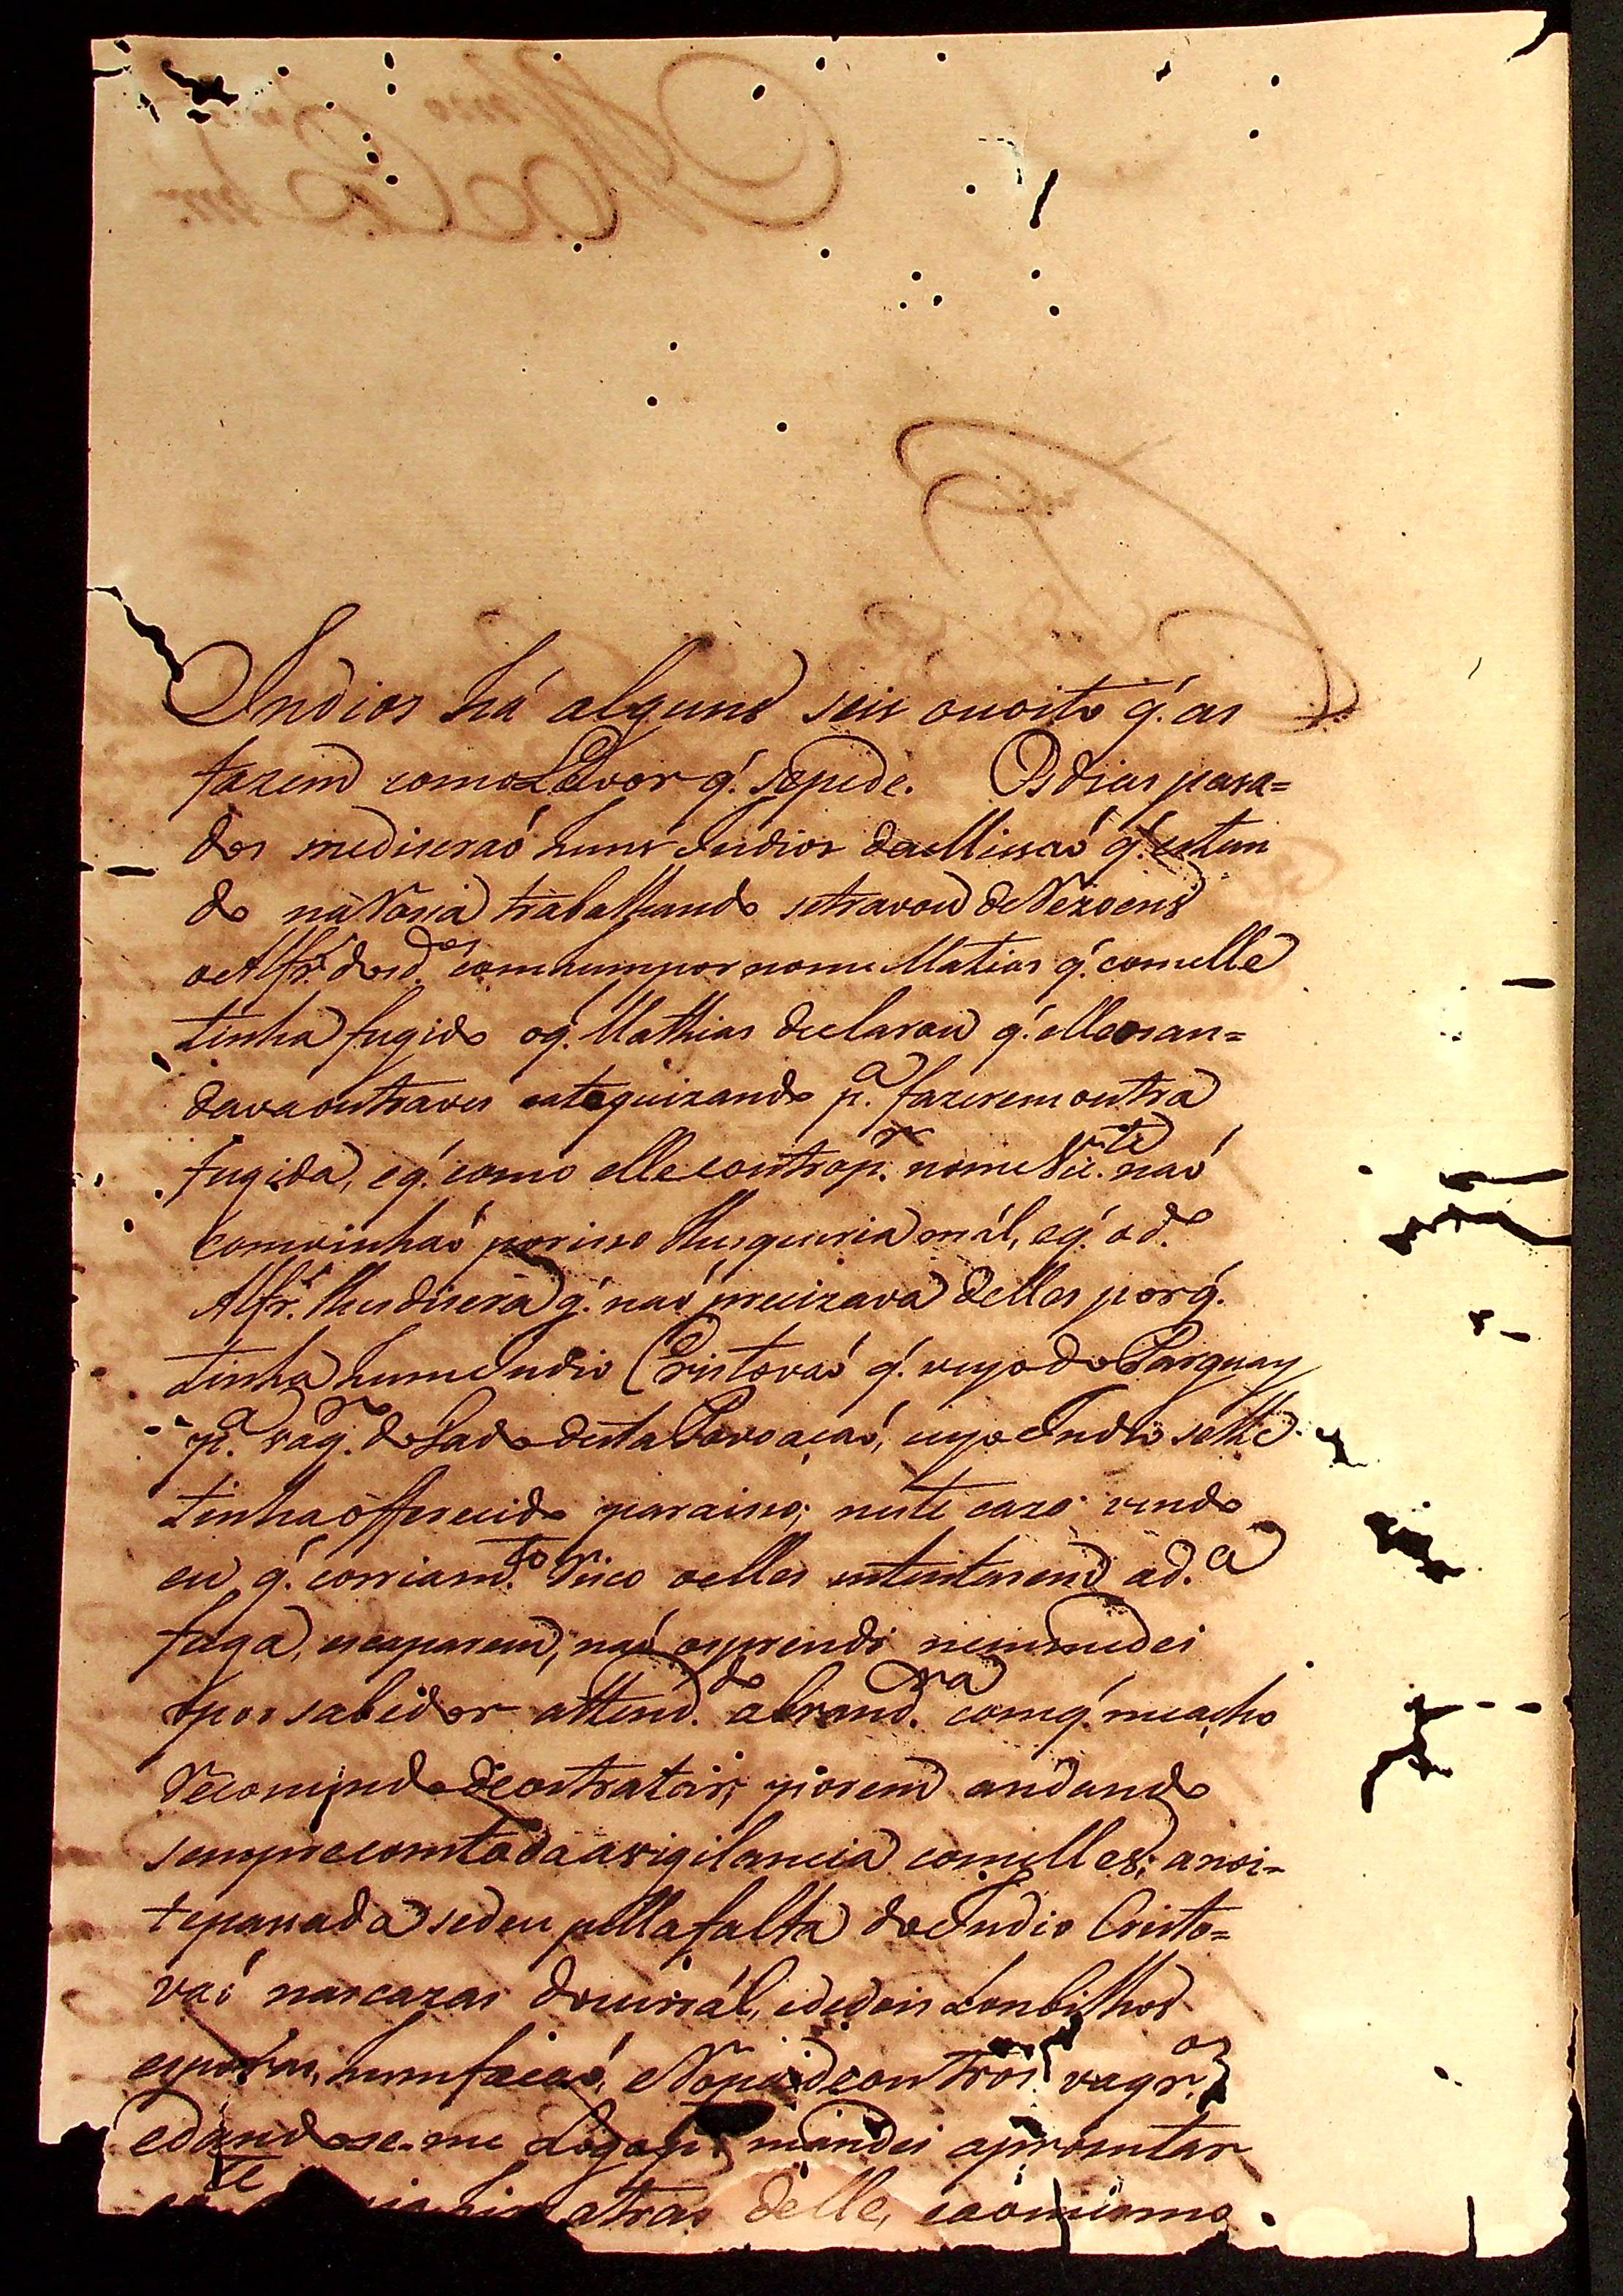 Indios há alguns seis ou oito q. as
fazem como Levor q. se pede. Os dias pasa=
dos me diseraó huns Indios da Missaó q. estan
do na Rosia trabalhando se travou de Rezoens
o Alfr.s dos d.os com hum por nome Matias q. com elle
tinha fugido o q. Mathias declarou q. elle os an=
dava outra ves catequizando p.a fazerem outra
fugida, e q. como elle e outro p.r nome Vic.te naó
comvinhaó por iso lhes queria mál, e q. o d.o
Alfr.s lhes disera q. naó precizava delles por q.
tinha hum Indio Cristovaó q. veyo do Parguay
p.a vaq.ro do Gado desta Povoaçaó, cujo Indio se lhe
tinha offerecido para iso; neste cazo vendo
eu q. corria m.to Risco o elles intentarem a d.a
fuga, escaparem, naó os prendi nem me dei
por sabedor attend.do a brand.ra com q. me acho
Recomendado de os tratar; porem andando
sempre com toda a vigilancia com elles; a noi-
te pasada se deu pella falta do Indio Cristo=
vaó nas cazas do currál, e de dois Lonbilhos
esporas, hum facaó, e Roupa de outros vaqr.os
e dando se-me Logo p.te mandei aprontar
atras delle, e ao mesmo